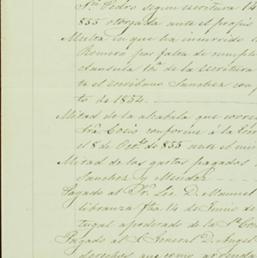 Sn. Pedro segun escritura 14
855 otorgada ante el propio
Multa en que ha incurrido
Romero por falta de cumpli
clausula 10a. de la escritura
te el escribano Sanchez con
to de 1854.
Mitad de la alcabala que corres
conforme á la
el 8 de Octe. de 855 ante el mi
Mitad de los gastos pagados
Sanchez y Mendez
Pagado al Sr. Lic D. Manuel
libranza fha 14 de Junio
tegal apoderado de la Sa.
Pagado al S General D. Angel
derechos que como